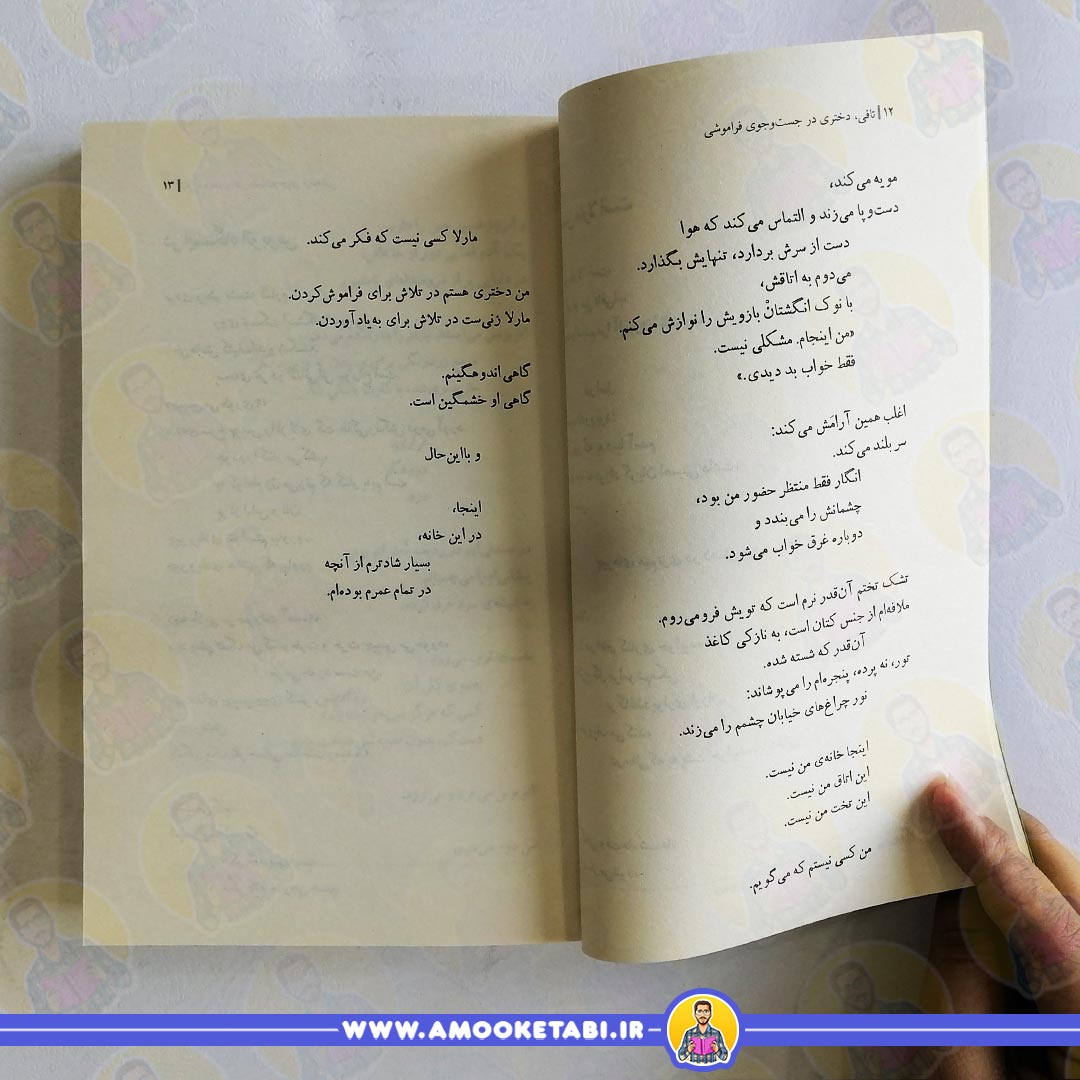 ۱۲ | تافی، دختری در جست‌وجوی فراموشی
مویه می‌کند،
دست‌وپا می‌زند و التماس می‌کند که هوا
دست از سرش بردارد، تنهایش بگذارد.
می‌دوم به اتاقش،
با نوک انگشتانْ بازویش را نوازش می‌کنم.
«من اینجام. مشکلی نیست.
فقط خواب بد دیدی.»
اغلب همین آرامَش می‌کند:
سر بلند می‌کند.
انگار فقط منتظر حضور من بود،
چشمانش را می‌بندد و
دوباره غرق خواب می‌شود.
تشک تختم آن‌قدر نرم است که تویش فرومی‌روم.
ملافه‌ام از جنس کتان است، به نازکی کاغذ
آن‌قدر که شسته شده.
تور، نه پرده، پنجره‌ام را می‌پوشاند:
نور چراغ‌های خیابان چشمم را می‌زند.
اینجا خانه‌ی من نیست.
این اتاق من نیست.
این تخت من نیست.
من کسی نیستم که می‌گویم.
| ۱۳
مارلا کسی نیست که فکر می‌کند.
من دختری هستم در تلاش برای فراموش‌کردن.
مارلا زنی‌ست در تلاش برای به‌یادآوردن.
گاهی اندوهگینم.
گاهی او خشمگین است.
و بااین‌حال
اینجا،
در این خانه،
بسیار شادترم از آنچه
در تمام عمرم بوده‌ام.
WWW.AMOOKETABI.IR